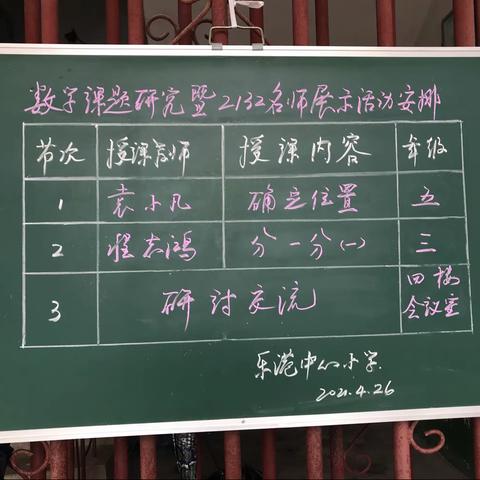 数学课题研究暨2132名师展示活动安排
节次 授课教师 授课内容 年级
1 袁小凡 确定位置 五
2 程志鸿 分一分(一) 三
3 研讨交流 四楼会议室
乐港中心小学
2021.4.26